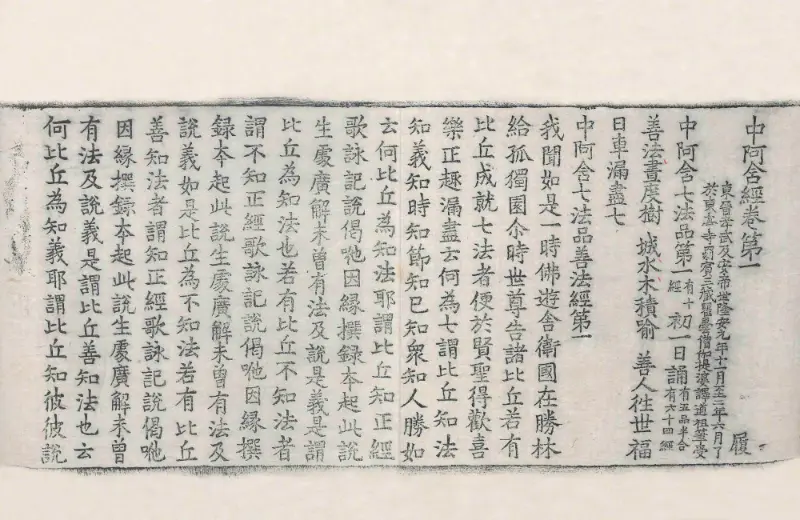 中阿含經卷第一 履
東晉孝武及安帝世隆安元年十一月至二年六月了
於東亭寺罽賓三藏瞿曇僧伽提婆譯道祖筆受
中阿含七法品第一 有十經 初一日誦 有五品半合有六十四經
善法晝度樹 城水木積喻 善人往世福
日車漏盡七
中阿含七法品善法經第一
我聞如是一時佛遊舍衛國在勝林
給孤獨園尒時世尊告諸比丘若有
比丘成就七法者便於賢聖得歡喜
樂正趣漏盡云何為七謂比丘知法
知義知時知節知己知衆知人勝如
云何比丘為知法耶謂比丘知正經
歌詠記說偈咃因緣撰録本起此說
生處廣解未曾有法及說是義是謂
比丘為知法也若有比丘不知法者
謂不知正經歌詠記說偈咃因緣撰
録本起此說生處廣解未曾有法及
說義如是比丘為不知法若有比丘
善知法者謂知正經歌詠記說偈咃
因緣撰録本起此說生處廣解未曾
有法及說義是謂比丘善知法也云
何比丘為知義耶謂比丘知彼彼說